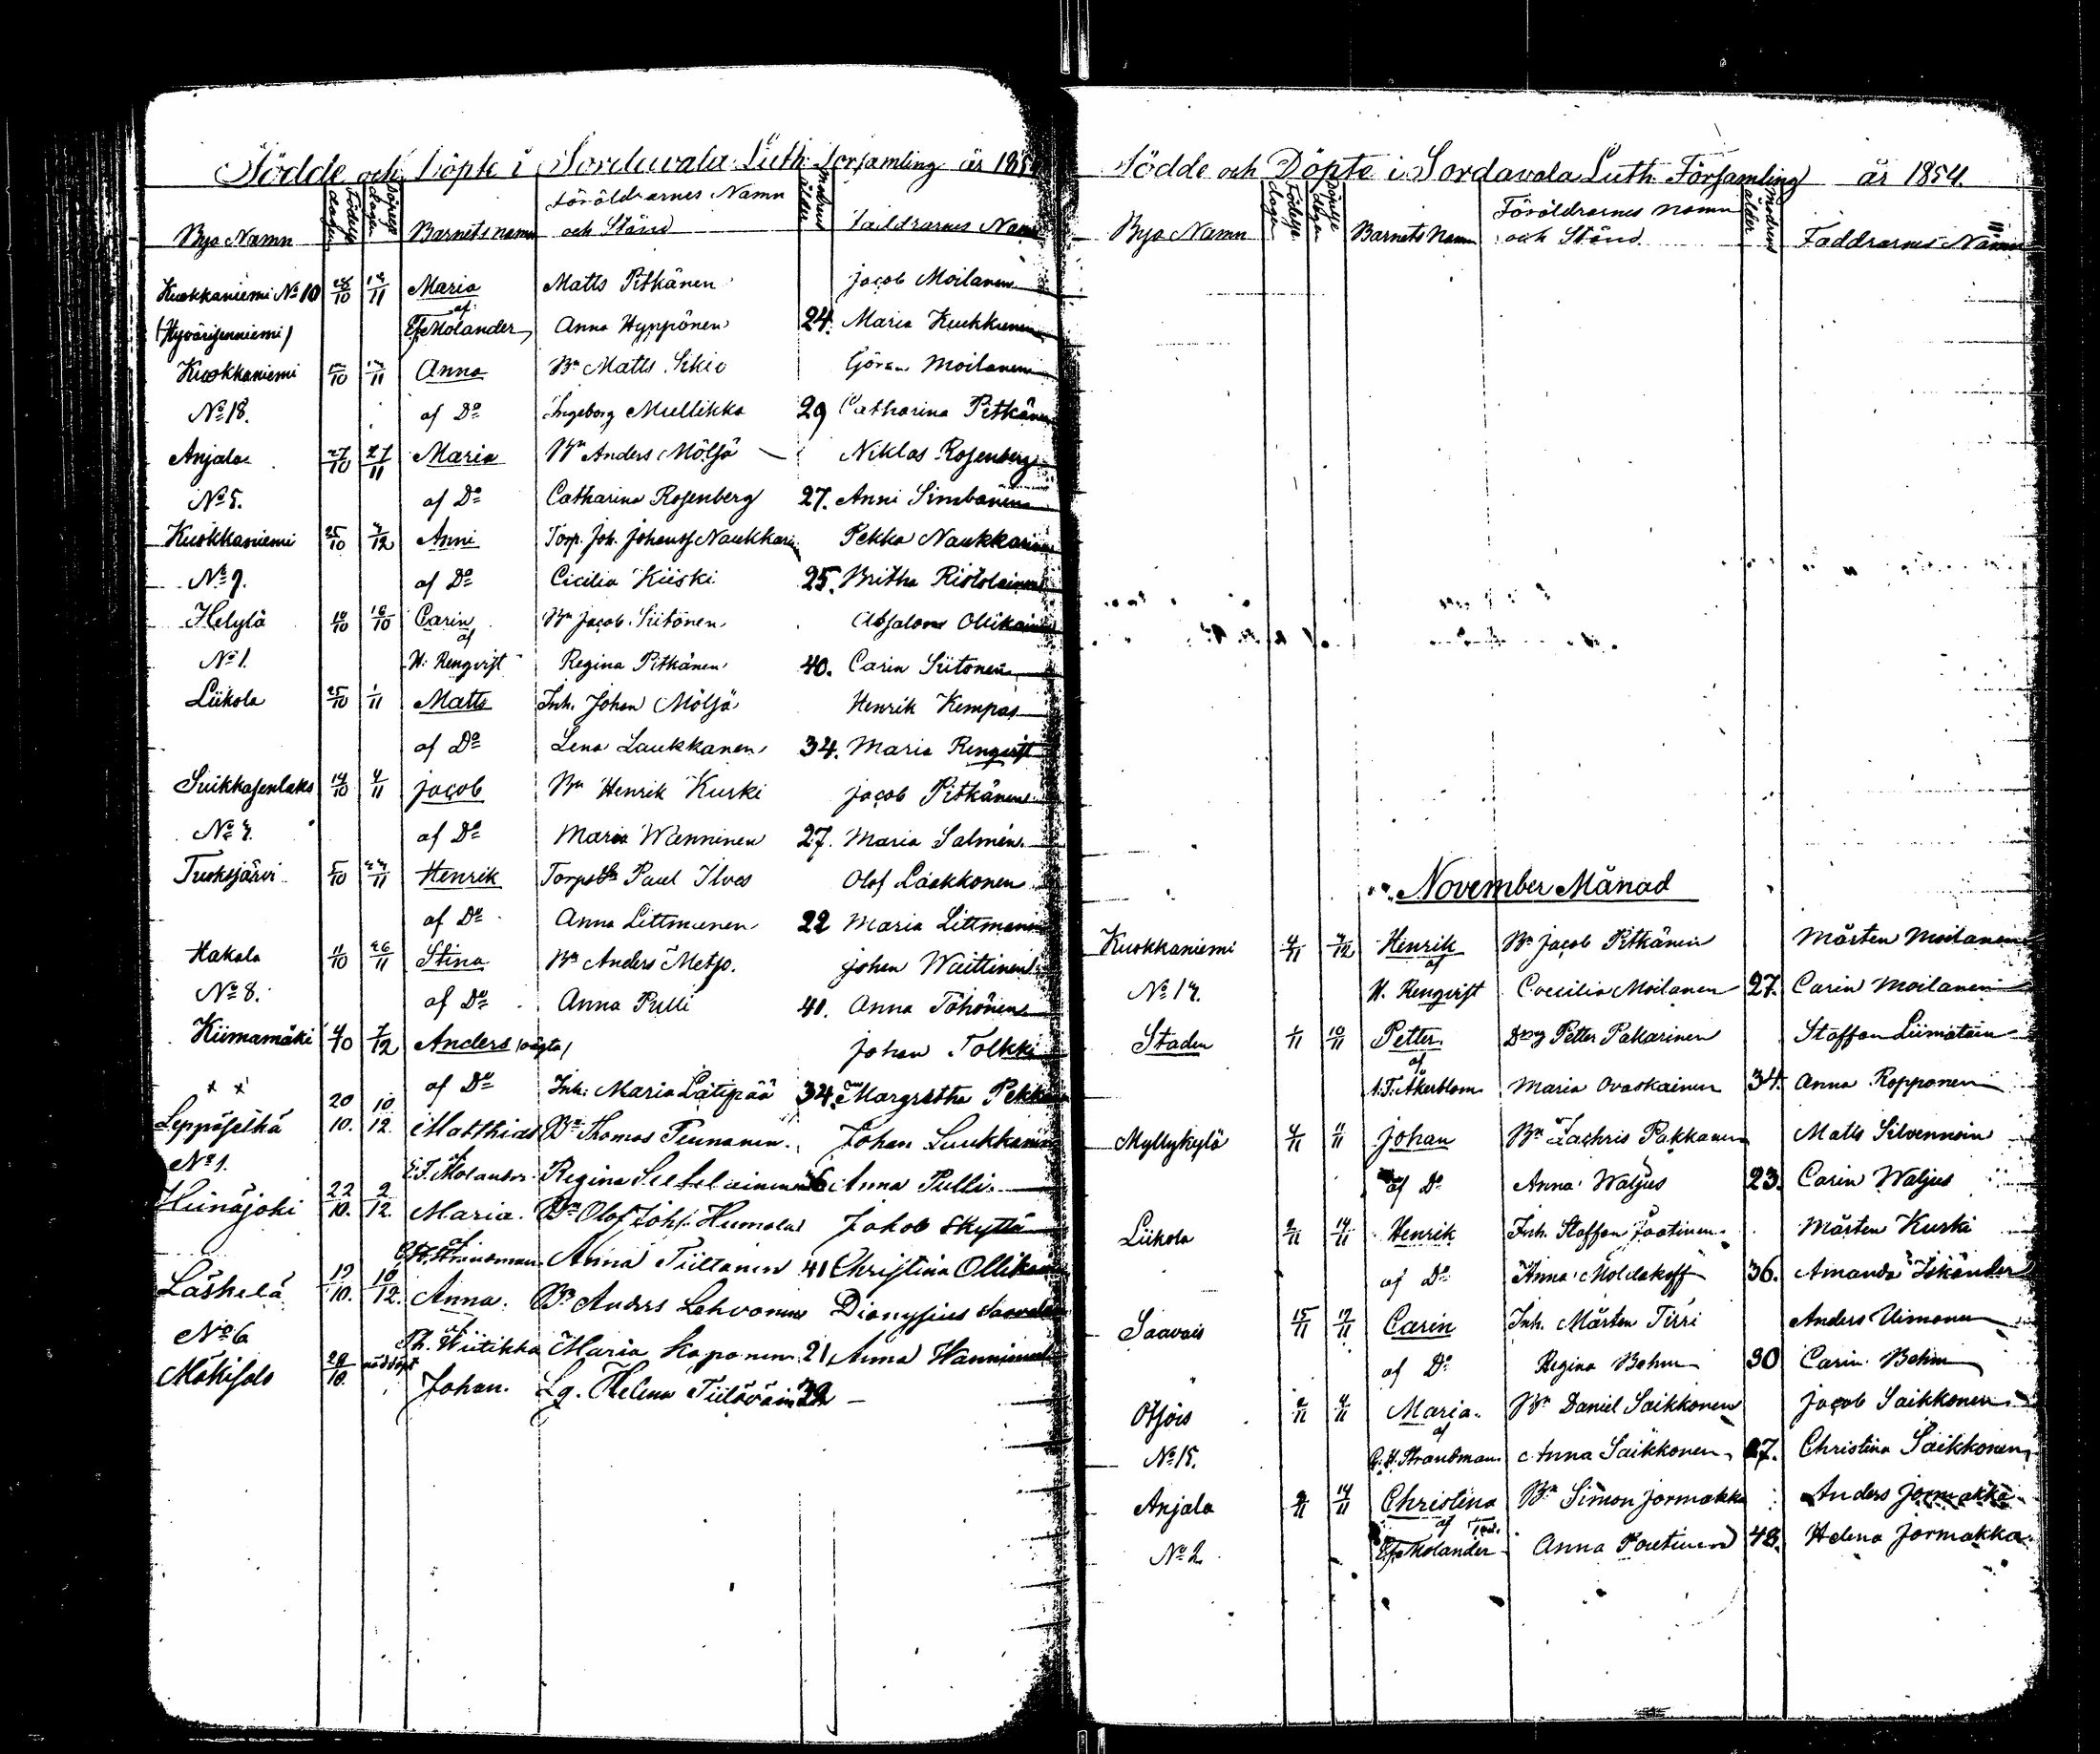 Födde och Döpte i Sordavala Luth. Församling år 1854
Bya Namn Födelse dagen Döpelse dagen Barnets namn Föräldrarnes Namn och Stånd Modrens ålder Faddrarnes Namn
Kuokkaniemi No 10 28/10 12/11 Maria Matts Pitkänen Jacob Moilanen
(Hyvärisenniemi) af E. F. Molander Anna Hyppönen 24. Maria Kuckkunen
Kuokkaniemi /10 /11 Anna Bn Matts Sikiö Göran Moilanen
No 18. af Do Ingeborg Mullikka 29 Catharina Pitkänen
Anjala 27/10 27/11 Maria Bn Anders Möljä Niklas Rosenberg
No 5. af Do Catharina Rosenberg 27. Anni Simbanen
Kuokkaniemi 25/10 /12 Anni Torp. Joh. Johanss Naukkarin Pekka Naukkarinen
No 9. af Do Cicilia Kiiski 25. Britha Ristolainen
Helylä 10/10 18/10 Carin Bn Jacob Siitonen Absalom Ollikainen
No 1. af H. Renqvist Regina Pitkänen 40. Carin Siitonen
Liikola 25/10 1/11 Matts Inh. Johan Möljä Henrik Kempas
af Do Lena Laukkanen 34. Maria Renqvist
Suikkasenlaks 14/10 4/11 Jacob Bn Henrik Kuski Jacob Pitkänen
No 7. af Do Maria Wänninen 27. Maria Salmén
Tuoksjärvi /10 /11 Henrik Torpsbn Paul Ilves Olof Laakkonen
af Do Anna Littmanen 22 Maria Littmanen
Hakala 11/10 26/11 Stina Bn Anders Metso. Johan Waittinen
No 8. af Do Anna Pulli 41. Anna Töhönen
Kiimamäki 4/10 7/12 Anders (oägta) Johan Tolkki
x x af Do Inh. Maria Lätipää 34. Margretha Pekk
Leppäselkä 20/10. 10/12. Matthias Bn Thomas Tiunanen. Johan Luukkanen
No 1. af E. F. Molander. Regina Seetelainen Anna Pulli.
Heinäjoki 22/10. 2/12. Maria. Bn Olof Johs. Humala Jakob Skyttä
af C. H. Strandman. Anna Tiiltanen 41 Christina Ollikainen
Läskelä 19/10. 10/12. Anna. Bn Anders Lahvonen Dionysius
No 6 af Th. Wiitikka Maria Kaponen 21 Anna Hanninen
Mäkisalo 29/10. nöddöpt Johan. Lg. Helena Tiiläväin 32 —
Födde och Döpte i Sordavala Luth. Församling år 1854.
Bya Namn Födelse dagen Döpelse dagen Barnets Namn Föräldrarnes Namn och Stånd. Modrens ålder Faddrarnes Namn
November Månad
Kuokkaniemi 4/11 /12 Henrik Bn Jacob Pitkänen Mårten Moilanen
No 17. af H. Renqvist Coecilia Moilanen 27. Carin Moilanen
Staden 1/11 10/11 Petter. Petter Pakarinen Staffan Liimatain
af A. F. Åkerblom Maria Ovaskainen 34. Anna Ropponen
Myllykylä 4/11 11/11 Johan Bn Zachris Pakkanen Matts Silvennoin
af Do Anna Waljus 23. Carin Waljus
Liikola 2/11 14/11 Henrik Inh. Staffan Jaatinen Mårten Kuski
af Do Anna Moldakoff 36. Amanda Iskander
Saavais 15/11 17/11 Carin Inh. Mårten Tirri Anders Uimonen
af Do Regina Bohm 30 Carin Bohm
Otsois 2/11 4/11 Maria. Bn Daniel Saikkonen Jacob Saikkonen
No 15. af C. H. Strandman Anna Saikkonen 27. Christina Saikkonen
Anjala 9/11 14/11 Christina Bn Simon Jormakka Anders Jormakka
No 2 af E. F. Molander Anna Poutinen 48. Helena Jormakka